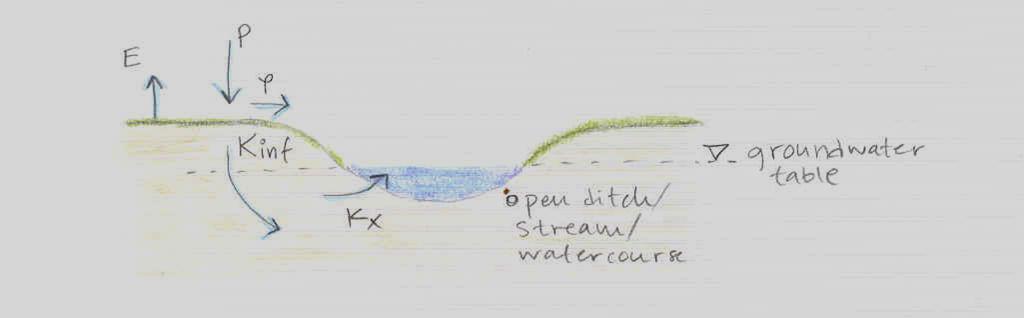 P
E
φ
Kinf
∇ groundwater
table
Kx
open ditch/
stream/
watercourse